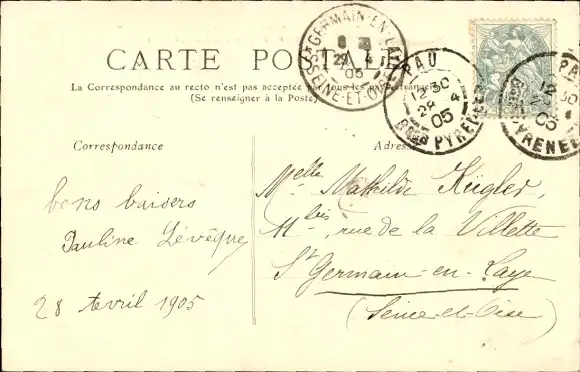 CARTE POSTALE
La Correspondance au recto n'est pas acceptée par tous les pays étrangers
(Se renseigner à la Poste)
ST GERMAIN-EN-LAYE
8
29 4
05
SEINE-ET-OISE
PAU
12 30
28 4
05
BSES PYRENEES
PAU
12 30
05
PYRENEES
Correspondance
bons baisers
Pauline Lévêque
28 Avril 1905
Adresse
Melle Mathilde Kügler,
bis, rue de la Villette
St Germain-en-Laye
(Seine-et-Oise)